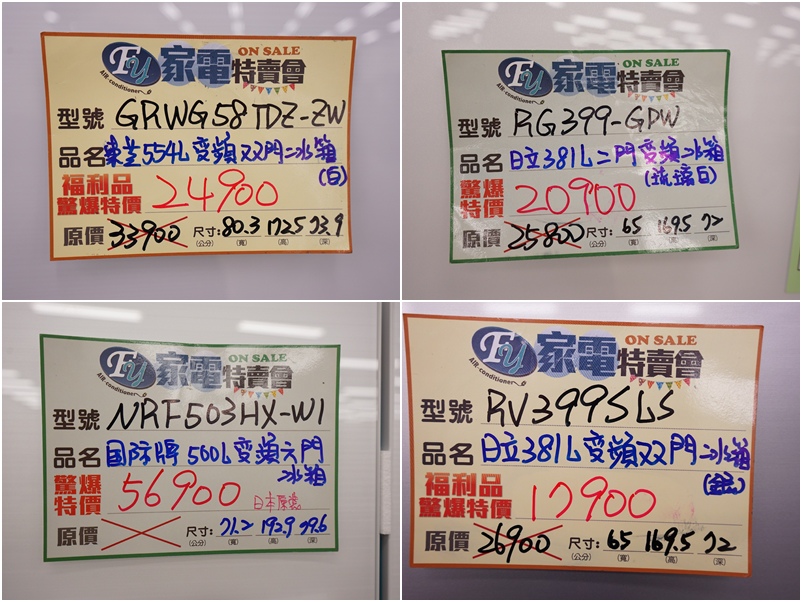 FY 家電特賣會 ON SALE
AIR-conditioner
型號 GRWG58TDZ-ZW
品名 東芝554L變頻双門冰箱
(白)
福利品
驚爆特價 24900
原價 33900 尺寸:(公分) 80.3(寬) 172.5(高) 73.9(深)
FY 家電特賣會 ON SALE
AIR-conditioner
型號 RG399-GPW
品名 日立381L二門變頻冰箱
(琉璃白)
驚爆
特價 20900
原價 25800 尺寸:(公分) 65(寬) 169.5(高) 72(深)
FY 家電特賣會 ON SALE
AIR-conditioner
型號 NRF503HX-W1
品名 国际牌500L變頻六門
冰箱
驚爆
特價 56900 日本原裝
原價 尺寸:(公分) 71.2(寬) 192.9(高) 79.6(深)
FY 家電特賣會 ON SALE
AIR-conditioner
型號 RV399SLS
品名 日立381L變頻双門冰箱
福利品
驚爆特價 17900
原價 26900 尺寸:(公分) 65(寬) 169.5(高) 72(深)